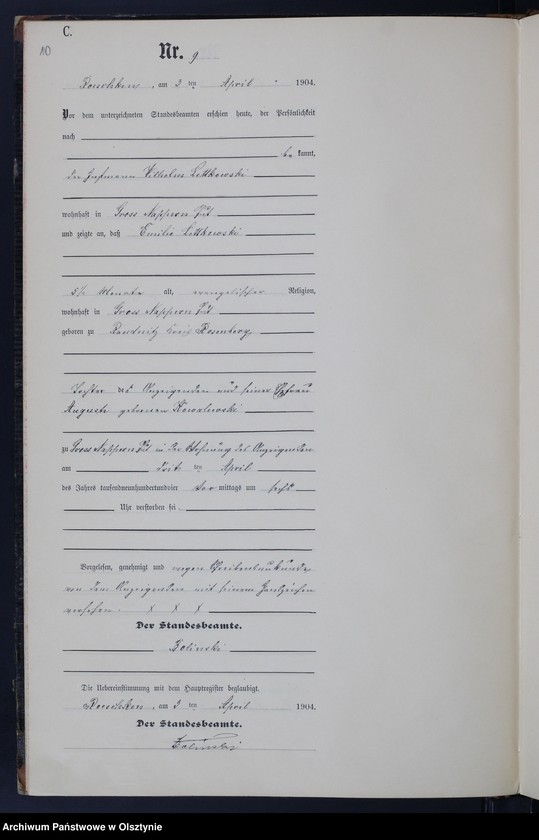 C.
10
Nr. 9
, am 3 ten April 1904.
Vor dem unterzeichneten Standesbeamten erschien heute, der Persönlichkeit
nach
be kannt,
der Wilhelm Lettkowski
wohnhaft in Gross Nappern Gut
und zeigte an, daß Emilie Lettkowski
5½ Monate alt, evangelischer Religion,
wohnhaft in Gross Nappern Gut
geboren zu Raudnitz Kreis Rosenberg
Tochter des Anzeigenden und seiner Ehefrau
Auguste geborenen Kowalewski
zu Gross Nappern Gut in der Wohnung des Anzeigenden
am ten April
des Jahres tausendneunhundertundvier Vor mittags um sechs
Uhr verstorben sei.
Vorgelesen, genehmigt und wegen Schreibensunkunde
von dem Anzeigenden mit seinem Handzeichen
versehen. X X X
Der Standesbeamte.
Golinski
Die Uebereinstimmung mit dem Hauptregister beglaubigt.
, am 3 ten April 1904.
Der Standesbeamte.
Golinski
Archiwum Państwowe w Olsztynie